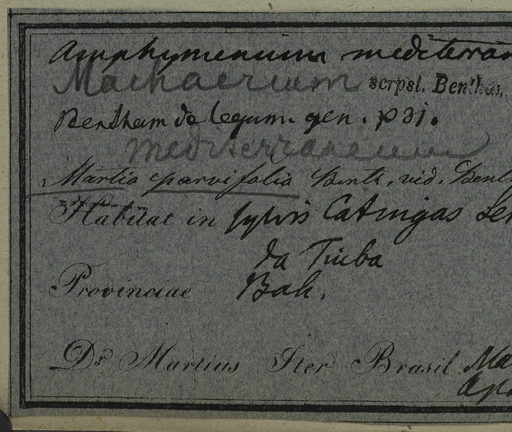 Amphymenium mediterran
Machaerium scrpsi. Bentham.
Bentham de legum. gen. p 31.
mediterraneum
Martia parvifolia Benth. vid. Benth
Habitat in sylvis Catingas Ser
da Tiuba
Provinciae Bah.
Dr. Martius Iter Brasil. Ma
Apr